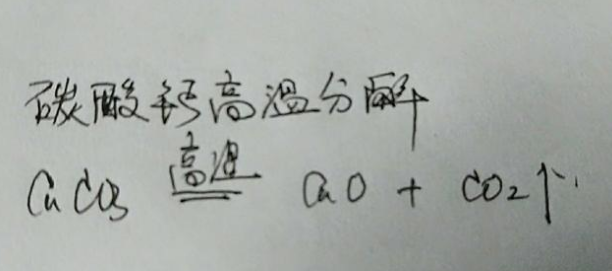 碳酸钙高温分解
CaCO₃ 高温 == CaO + CO₂↑